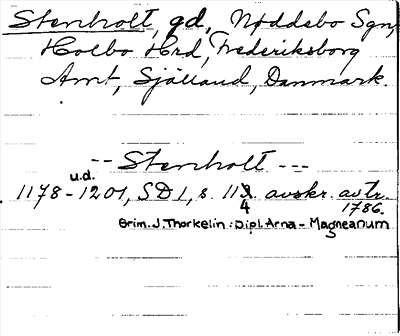 Stenholt, gd, Nøddebo Sgn,
Holbo Hrd, Frederiksborg
Amt, Sjælland, Danmark.
-- Stenholt ---
u.d.
1178-1201, SD 1, s. 114 avskr. avtr.
1786.
Grim. J. Thorkelin: Dipl. Arna-Magneanum